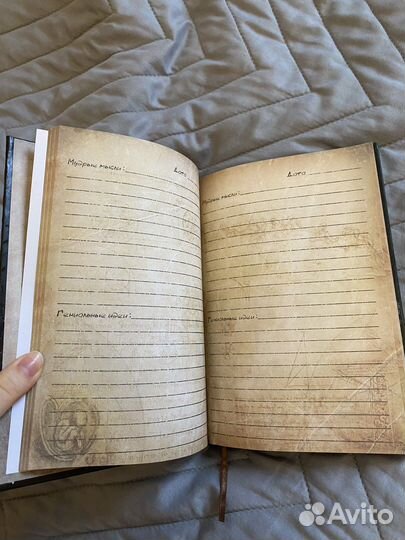 Мудрые мысли: Дата
Гениальные идеи:
Мудрые мысли: Дата
Гениальные идеи:
Avito